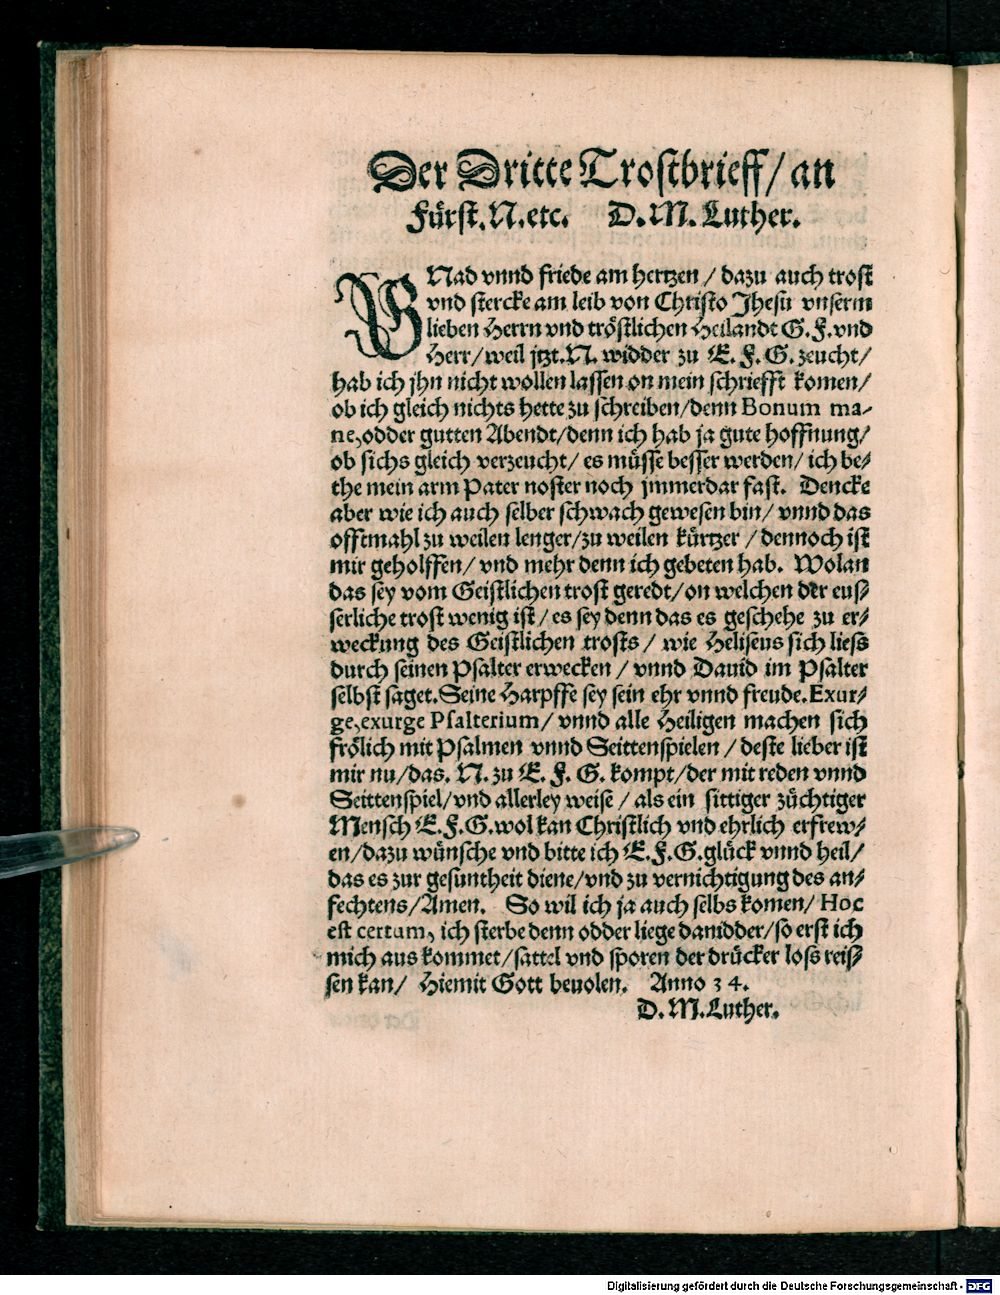 Der Dritte Trostbrieff/ an
Fürst. N. etc. D. M. Luther.
GNad vnnd friede am hertzen / dazu auch trost
vnd stercke am leib von Christo Jhesu vnserm
lieben Herrn vnd tröstlichen Heilandt G. F. vnd
Herr/ weil jtzt. N. widder zu E. F. G. zeucht/
hab ich jhn nicht wollen lassen on mein schriefft komen/
ob ich gleich nichts hette zu schreiben/denn Bonum ma-
ne, odder gutten Abendt/denn ich hab ja gute hoffnung/
ob sichs gleich verzeucht/ es müsse besser werden/ ich be-
the mein arm Pater noster noch jmmerdar fast. Dencke
aber wie ich auch selber schwach gewesen bin/ vnnd das
offtmahl zu weilen lenger/zu weilen kürtzer / dennoch ist
mir geholffen/ vnd mehr denn ich gebeten hab. Wolan
das sey vom Geistlichen trost geredt/on welchen der eus-
serliche trost wenig ist/ es sey denn das es geschehe zu er-
weckung des Geistlichen trosts / wie Heliseus sich liess
durch seinen Psalter erwecken / vnnd Dauid im Psalter
selbst saget. Seine Harpffe sey sein ehr vnnd freude. Exur-
ge, exurge Psalterium/ vnnd alle Heiligen machen sich
frölich mit Psalmen vnnd Seittenspielen / deste lieber ist
mir nu/das. N. zu E. F. G. kompt/der mit reden vnnd
Seittenspiel/vnd allerley weise / als ein sittiger züchtiger
Mensch E. F. G. wol kan Christlich vnd ehrlich erfrew-
en/dazu wünsche vnd bitte ich E. F. G. glück vnnd heil/
das es zur gesuntheit diene/vnd zu vernichtigung des an-
fechtens/Amen. So wil ich ja auch selbs komen/ Hoc
est certum, ich sterbe denn odder liege danidder/so erst ich
mich aus kommet/sattel vnd sporen der drücker loss reis-
sen kan/ Hiemit Gott beuolen. Anno 34.
D. M. Luther.
Digitalisierung gefördert durch die Deutsche Forschungsgemeinschaft - DFG